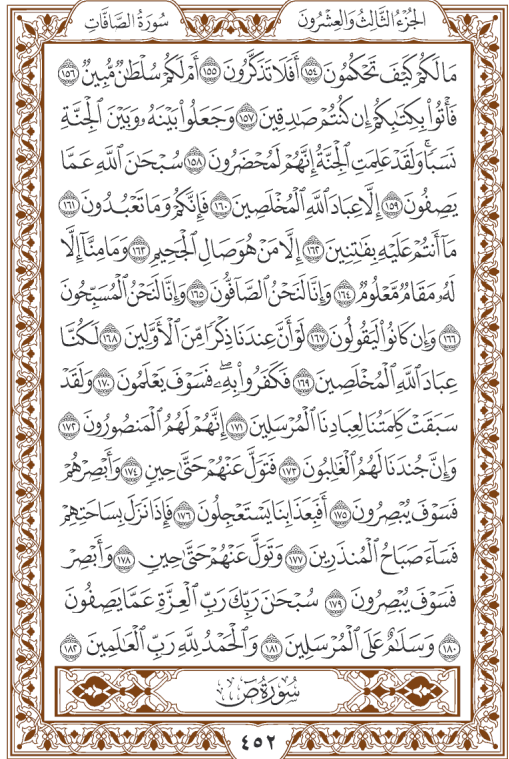 الجُزْءُ الثَّالِثُ وَالعِشْرُونَ
سُورَةُ الصَّافَّاتِ
مَا لَكُمْ كَيْفَ تَحْكُمُونَ ١٥٤ أَفَلَا تَذَكَّرُونَ ١٥٥ أَمْ لَكُمْ سُلْطَٰنٌ مُّبِينٌ ١٥٦
فَأْتُوا۟ بِكِتَٰبِكُمْ إِن كُنتُمْ صَٰدِقِينَ ١٥٧ وَجَعَلُوا۟ بَيْنَهُۥ وَبَيْنَ ٱلْجِنَّةِ
نَسَبًاۚ وَلَقَدْ عَلِمَتِ ٱلْجِنَّةُ إِنَّهُمْ لَمُحْضَرُونَ ١٥٨ سُبْحَٰنَ ٱللَّهِ عَمَّا
يَصِفُونَ ١٥٩ إِلَّا عِبَادَ ٱللَّهِ ٱلْمُخْلَصِينَ ١٦٠ فَإِنَّكُمْ وَمَا تَعْبُدُونَ ١٦١
مَآ أَنتُمْ عَلَيْهِ بِفَٰتِنِينَ ١٦٢ إِلَّا مَنْ هُوَ صَالِ ٱلْجَحِيمِ ١٦٣ وَمَا مِنَّآ إِلَّا
لَهُۥ مَقَامٌ مَّعْلُومٌ ١٦٤ وَإِنَّا لَنَحْنُ ٱلصَّآفُّونَ ١٦٥ وَإِنَّا لَنَحْنُ ٱلْمُسَبِّحُونَ
١٦٦ وَإِن كَانُوا۟ لَيَقُولُونَ ١٦٧ لَوْ أَنَّ عِندَنَا ذِكْرًا مِّنَ ٱلْأَوَّلِينَ ١٦٨ لَكُنَّا
عِبَادَ ٱللَّهِ ٱلْمُخْلَصِينَ ١٦٩ فَكَفَرُوا۟ بِهِۦۖ فَسَوْفَ يَعْلَمُونَ ١٧٠ وَلَقَدْ
سَبَقَتْ كَلِمَتُنَا لِعِبَادِنَا ٱلْمُرْسَلِينَ ١٧١ إِنَّهُمْ لَهُمُ ٱلْمَنصُورُونَ ١٧٢
وَإِنَّ جُندَنَا لَهُمُ ٱلْغَٰلِبُونَ ١٧٣ فَتَوَلَّ عَنْهُمْ حَتَّىٰ حِينٍ ١٧٤ وَأَبْصِرْهُمْ
فَسَوْفَ يُبْصِرُونَ ١٧٥ أَفَبِعَذَابِنَا يَسْتَعْجِلُونَ ١٧٦ فَإِذَا نَزَلَ بِسَاحَتِهِمْ
فَسَآءَ صَبَاحُ ٱلْمُنذَرِينَ ١٧٧ وَتَوَلَّ عَنْهُمْ حَتَّىٰ حِينٍ ١٧٨ وَأَبْصِرْ
فَسَوْفَ يُبْصِرُونَ ١٧٩ سُبْحَٰنَ رَبِّكَ رَبِّ ٱلْعِزَّةِ عَمَّا يَصِفُونَ
١٨٠ وَسَلَٰمٌ عَلَى ٱلْمُرْسَلِينَ ١٨١ وَٱلْحَمْدُ لِلَّهِ رَبِّ ٱلْعَٰلَمِينَ ١٨٢
سُورَةُ صٓ
٤٥٢